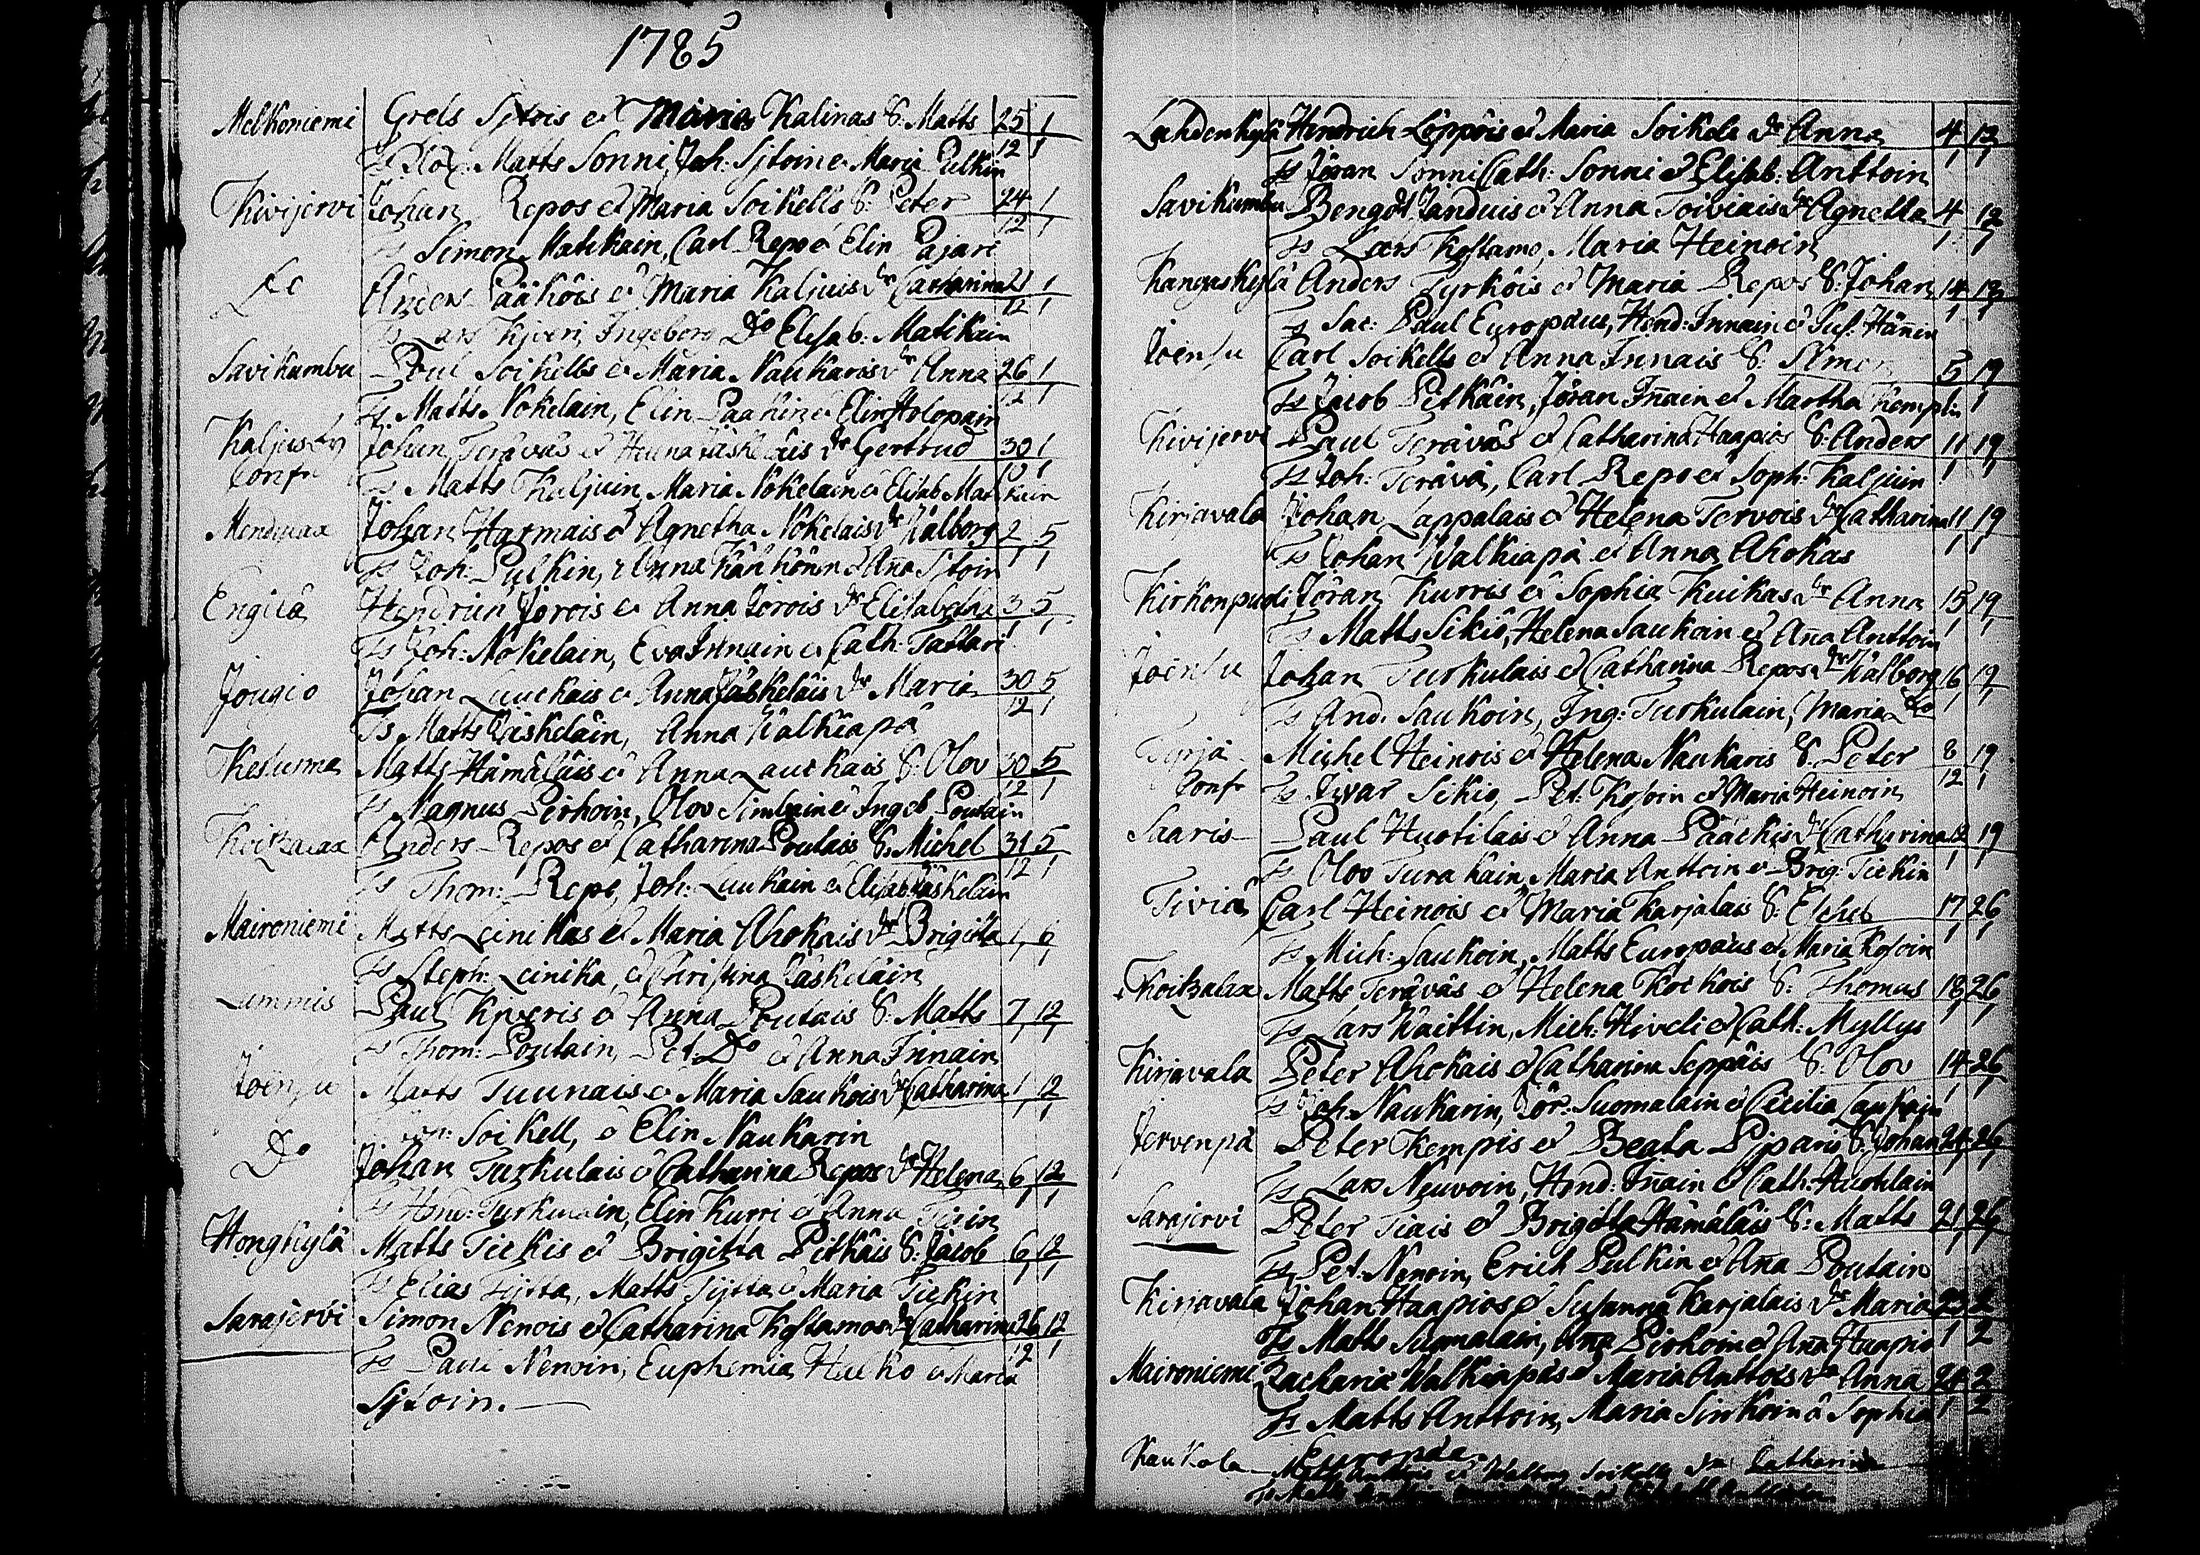 1785
Melkoniemi Grels Sjtois et Maria Kalinas S: Matts 25 1
Ts Olof. Matts Sonni, Joh: Sjtoin et Maria Pulkin 12 1
Kivijervi Johan Repos et Maria Soikells S: Peter 24 1
Ts Simon Matikain, Carl Repo et Elin Pajari 12 1
Anders Pääköis et Maria Kaljuis dr Catharina 21 1
Ts Lars Kjveri, Ingeborg Do Elisab: Matikain 12 1
Savikumbu Poul Soikells et Maria Naukaris dr Anna 26 1
Ts Matts Nokelain, Elin Paakin et Elin Holopain 12 1
Kaljus by Johan Teräväs et Helena Käskeläis dr Gertrud 30 1
Ts Matts Kaljuin, Maria Nokelain et Elisab Matikain 12 1
Menduax Johan Harmais et Agnetha Nokelais dr Walborg 2 5
Ts Joh: Pulkin, Anna Känkönen et Aña Sjtoin 1 1
Engilä Hendrich Jorois et Anna Jorois dr Elisabetha 3 5
Ts Joh: Nokelain, Eva Innain et Cath: Tattari 1 1
Jougio Johan Luukais et Anna Käskeläis dr Maria 30 5
Ts Matts Käskeläin, Anna Walkiapä 12 1
Kesusma Matts Hämäläis et Anna Laukais S: Olov 30 5
Ts Magnus Pirhoin, Olov Simlain et Ingeb Poutain 12 1
Koitzalax Anders Repos et Catharina Poutais S: Michel 31 5
Ts Thom: Repo, Joh: Luukain et Elisab Käskeläin 12 1
Maironiemi Matts Leinikas et Maria Ahokais dr Brigitta 1 6
Ts Steph: Leinika, et Christina Käskeläin 1 1
Lummis Paul Kjveris et Anna Poutais S: Matts 7 12
Ts Thom: Poutain, Pet: Do et Anna Innain 1 1
Joensu Matts Tuunais et Maria Saukois dr Catharina 1 12
Soikell, et Elin Naukarin 1 1
Do Johan Turkulais et Catharina Repos dr Helena 6 12
Ts Hend: Turkulain, Elin Kurri et Anna Turin 1 1
Honghylä Matts Tickis et Brigitta Pitkäis S: Jacob 6 12
Ts Elias Tijtta, Matts Tijtta et Maria Tickin 1 1
Sarajervi Simon Nenois et Catharina Kostamos dr Catharina 26 12
Ts Paul Nenoin, Euphemia Hucko et Maria 12 1
Sjtoin.
Lahdenkylä Hendrich Löppöis et Maria Soikels dr Anna 4 12
Ts Jöran Sonni Cath: Sonni et Elisab: Anttoin 1 1
Savikumbu Bengdt Janduis et Anna Toiviais dr Agnetha 4 12
Ts Lars Kostamo, Maria Heinoin 1 1
Kangaskylä Anders Tyrköis et Maria Repos S: Johan 14 12
Ts Sac: Paul Europæus, Hend: Innain et Sus: Hänin 1 1
Joensu Carl Soikells et Anna Innais S: Simon 5 19
Ts Jacob Pitkäin, Jöran Iñain et Martha Kempin 1 1
Kivijervi Paul Teräväs et Catharina Haapios S: Anders 11 19
Ts Joh: Terävä, Carl Repo et Soph: Kaljuin 1 1
Kirjavala Johan Lappalais et Helena Tervois dr Catharina 11 19
Ts Johan Walkiapä et Anna Ahokas 1 1
Kirkonpudi Jöran Kurris et Sophia Kuikas dr Anna 15 19
Ts Matts Sikiö, Helena Saukoin et Aña Anttoin 1 1
Joensu Johan Turkulais et Catharina Repos dr Walborg 16 19
Ts And: Saukoin, Ing: Turkulain, Maria Do 1 1
Michel Heinois et Helena Naukaris S: Peter 8 19
Ts Ivar Sikiö, Pet: Kosoin et Maria Heinoin 12 1
Saaris Paul Huotilais et Anna Pääckis dr Catharina 12 19
Ts Olov Turakain, Maria Anttoin et Brig: Tickin 1 1
Tiviä Carl Heinois et Maria Karjalais S: Eschel 17 26
Ts Mich: Saukoin, Matts Europæus et Maria Kosoin 1 1
Koitzalax Matts Teräväs et Helena Kockois S: Thomas 18 26
Ts Lars Waittin, Mich: Hiveli et Cath: Myllys 1 1
Kirjavala Peter Ahokais et Catharina Seppäis S: Olov 14 26
Ts Joh: Naukarin, Jör: Suomalain et Cecilia 1 1
Jervenpä Peter Kempis et Beata Piparis S: Johan 24 26
Ts Lars Neuvoin, Hend: Iñain et Cath: Huotilain 1 1
Sarajervi Peter Tiais et Brigitta Hämäläis S: Matts 21 26
Ts Pet: Nenoin, Erich Pulkin et Aña Poutain 1 1
Kirjavala Johan Haapios et Susanna Karjalais dr Maria 23 2
Ts Matts Suomalain, Aña Pirhoin et Aña Haapio 1 2
Maironiemi Zacharia Walkiapäs et Maria Anttois dr Anna 24 2
Ts Matts Anttoin, Maria Sinkoin et Sophia 1 2
Europæa
Kaukola Matts et Walborg Soikells dr Catharina